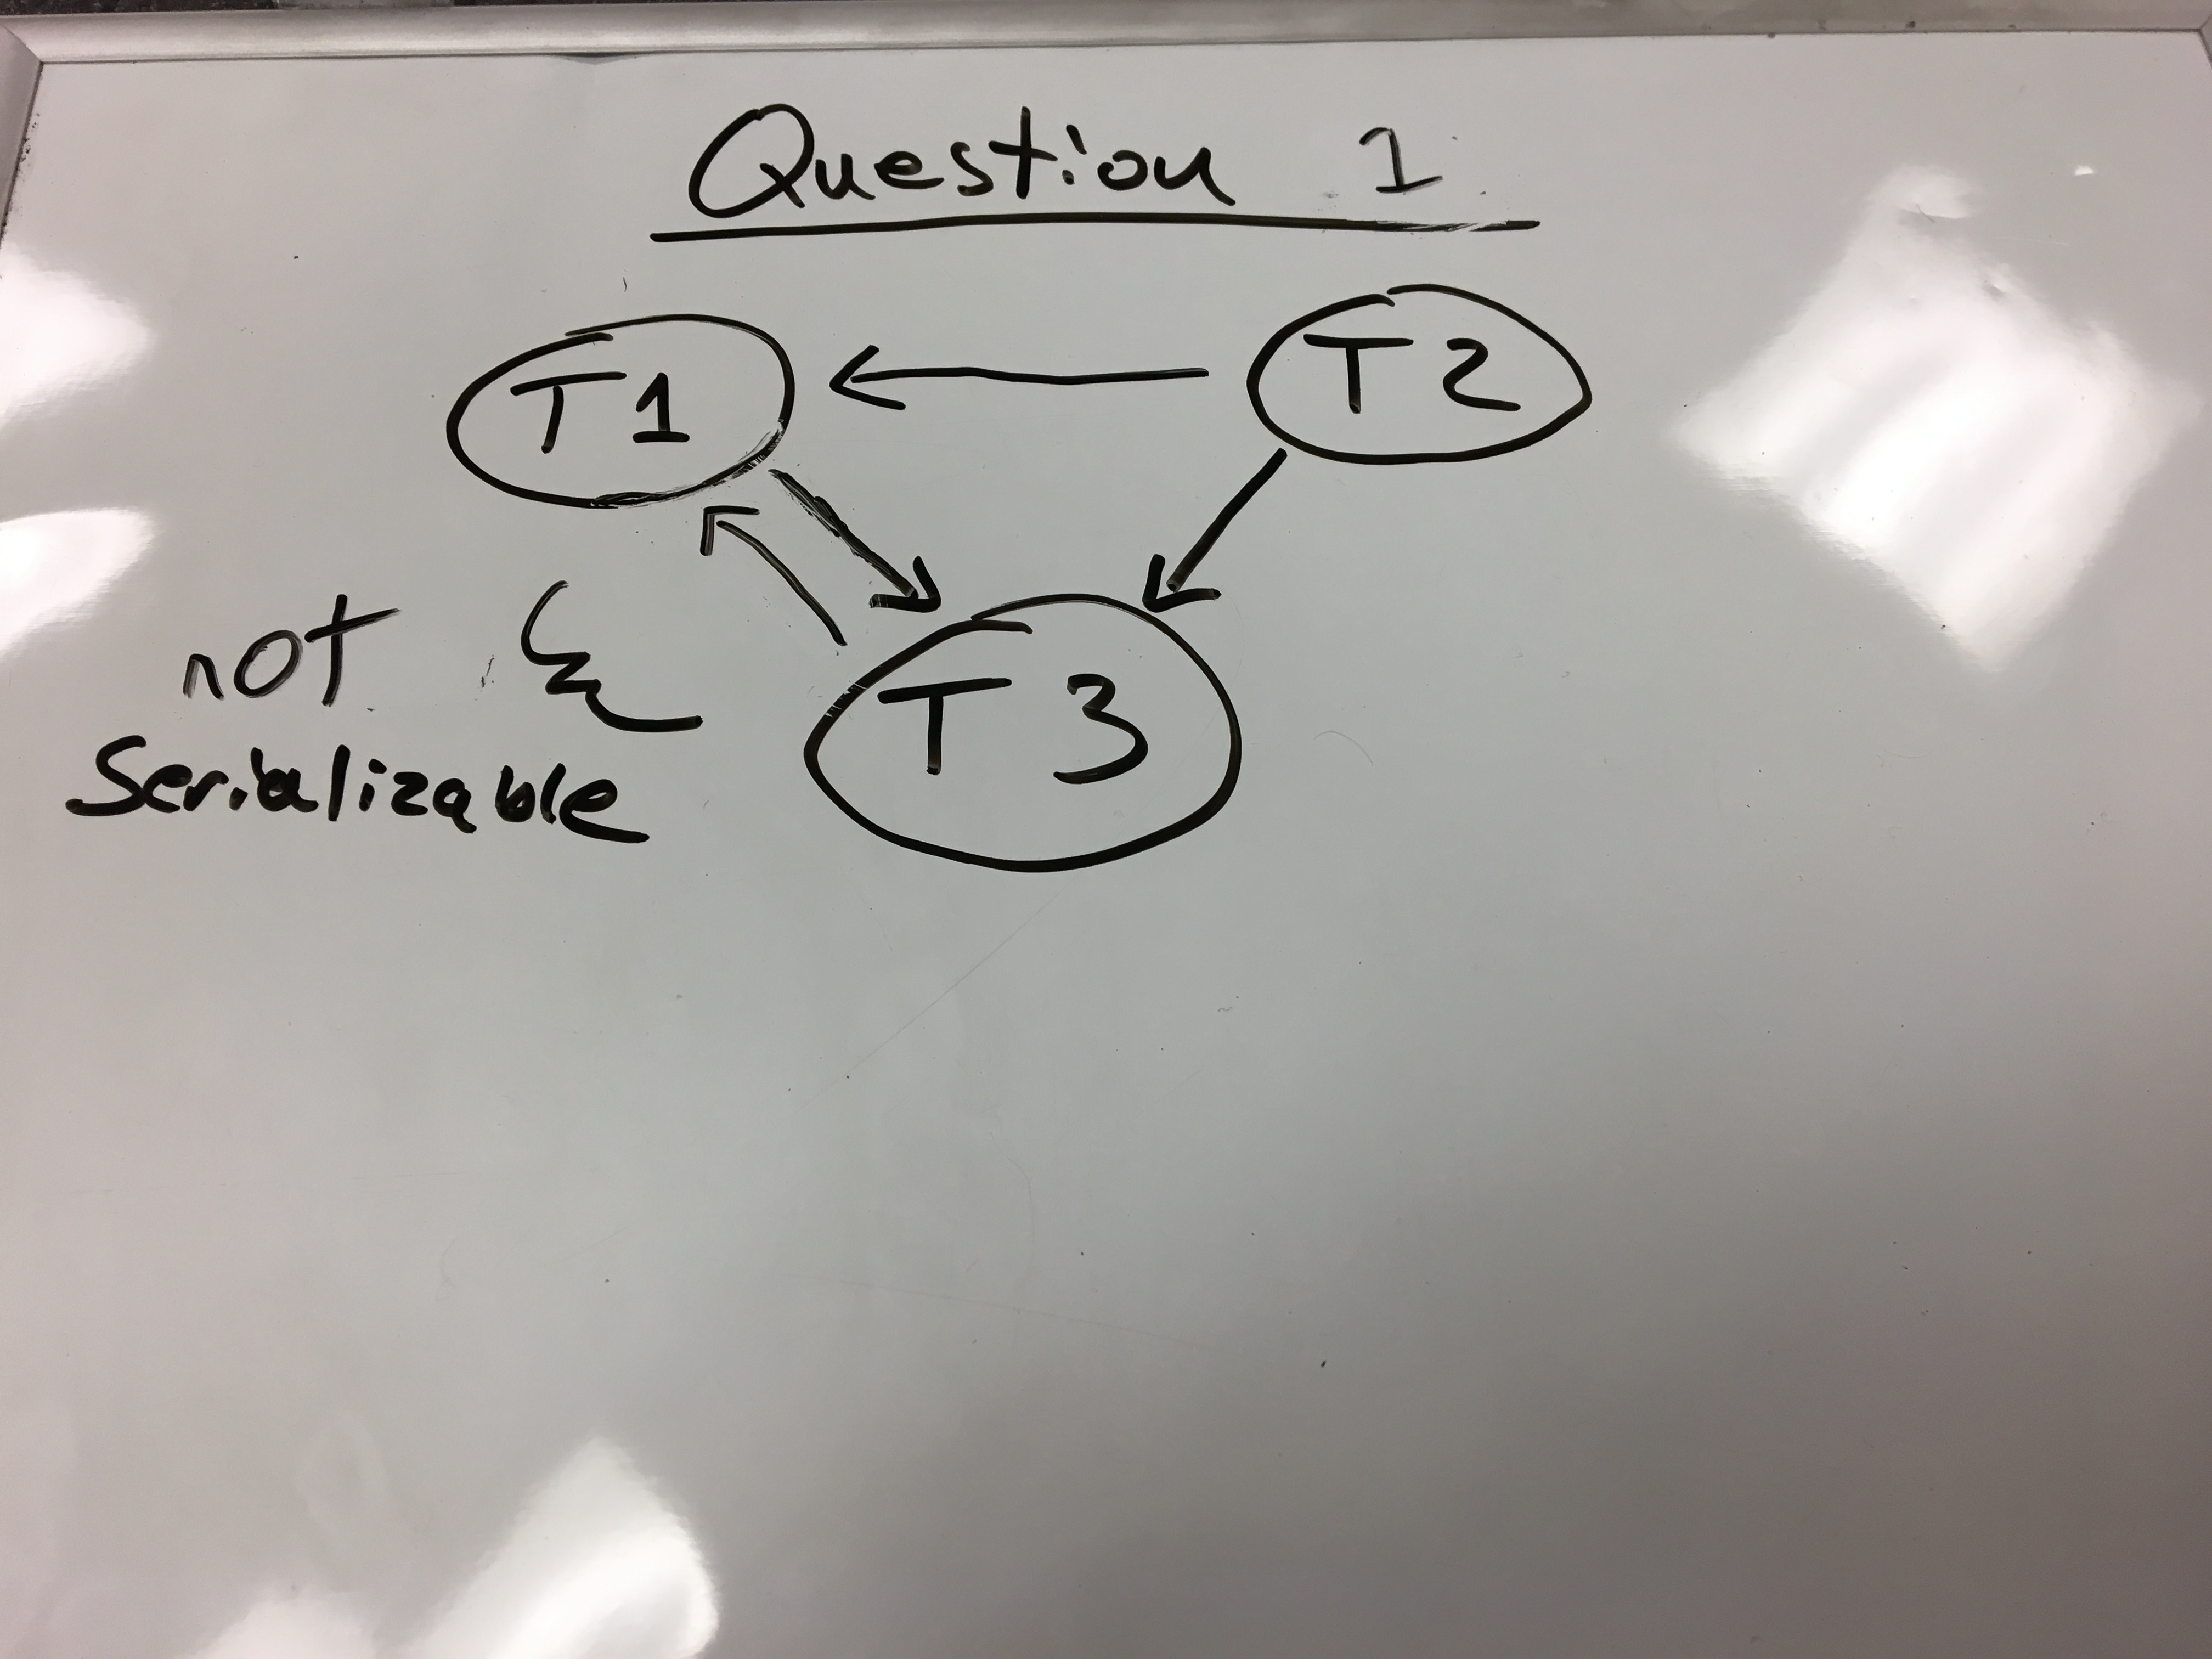 Question 1
T1
T2
T3
not
Serializable